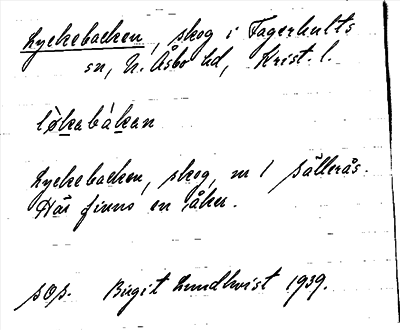 Lyckebacken, skog i Fagerhults
sn, N. Åsbo hd, Krist. l.
løkabákan
Lyckebacken, skog, m 1 Sällerås.
Här finns en åker.
sop. Birgit Lundkvist 1939.